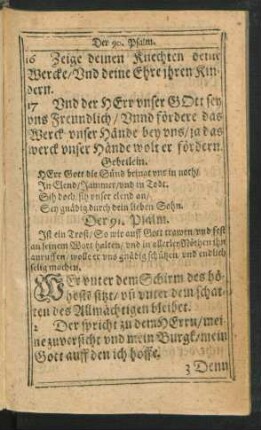 Der 90. Psalm.
16 Zeige deinen Knechten deine
Wercke/Vnd deine Ehre jhren Kin-
dern.
17 Vnd der HErr vnser GOtt sey
vns Freundlich/ Vnnd fördere das
Werck vnser Hände bey vns/ ja das
werck vnser Hände wolt er fördern.
Gebetlein.
HErr Gott die Sünd bringt vns in noth/
In Elend/Jammer/vnd in Todt.
Sih doch/ sih vnser elend an/
Sey gnädig durch dein lieben Sohn.
Der 91. Psalm.
Ist ein Trost/ So wir auff Gott trawen/vnd fest
an seinem Wort halten/ vnd in allerley Nöthen ihn
anruffen/ wolle er vns gnädig schützen/ vnd endlich
selig machen.
WEr vnter dem Schirm des hö-
hests sitzt/ vñ vnter dem schat-
ten des Allmächtigen bleibet.
2 Der spricht zu dem HErrn/ mei-
ne zuversicht vnd mein Burgk/mein
Gott auff den ich hoffe.
3 Denn